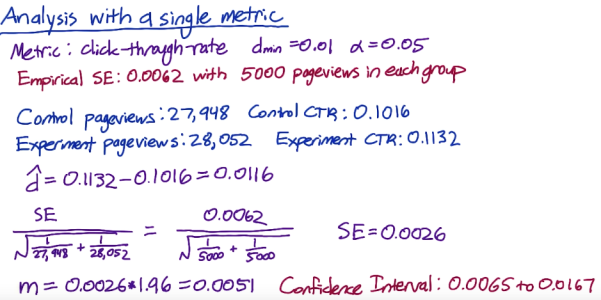 Analysis with a single metric
Metric: click-through-rate dmin =0.01 α=0.05
Empirical SE: 0.0062 with 5000 pageviews in each group
Control pageviews: 27,948 Control CTR: 0.1016
Experiment pageviews: 28,052 Experiment CTR: 0.1132
d̂ = 0.1132-0.1016 = 0.0116
SE / √(1/27,948 + 1/28,052) = 0.0062 / √(1/5000 + 1/5000) SE=0.0026
m = 0.0026*1.96 = 0.0051 Confidence Interval: 0.0065 to 0.0167